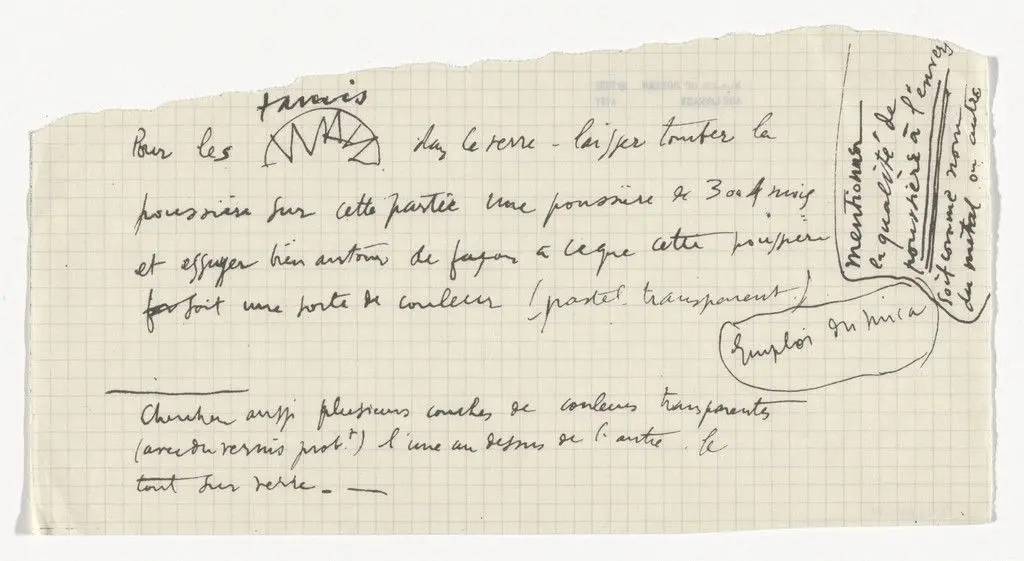 tamis
Pour les dans le verre - laisser tomber la
poussière sur cette partie une poussière de 3 ou 4 mois
et essuyer bien autour de façon à ce que cette poussière
soit une sorte de couleur (pastel transparent)
Emploi du mica
Chercher aussi plusieurs couches de couleurs transparentes
(avec du vernis probt) l'une au dessus de l'autre. le
tout sur verre. —
Mentionner
la qualité de
poussière à l'envers
soit comme nom
du métal ou autre